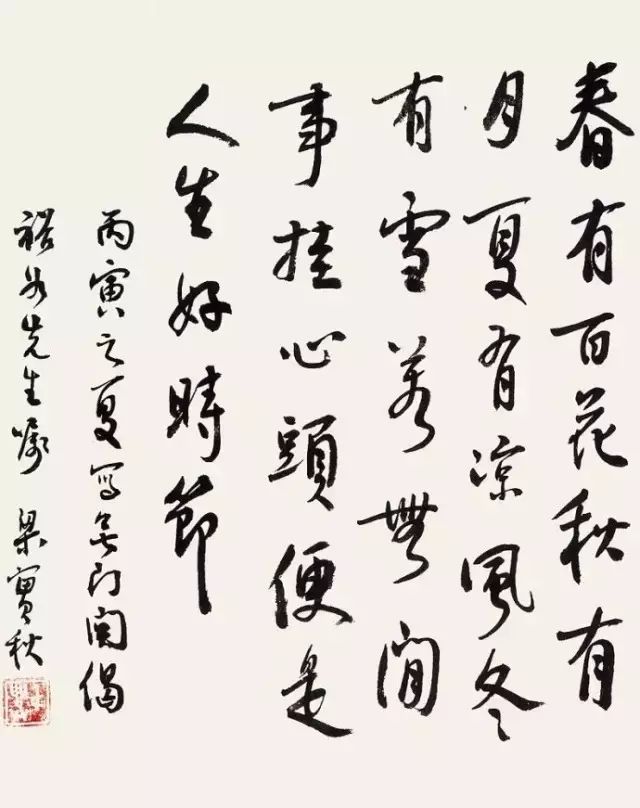 春有百花秋有
月夏有凉風冬
有雪若無閒
事挂心頭便是
人生好時節
丙寅之夏寫無門関偈
裕先生囑 梁實秋